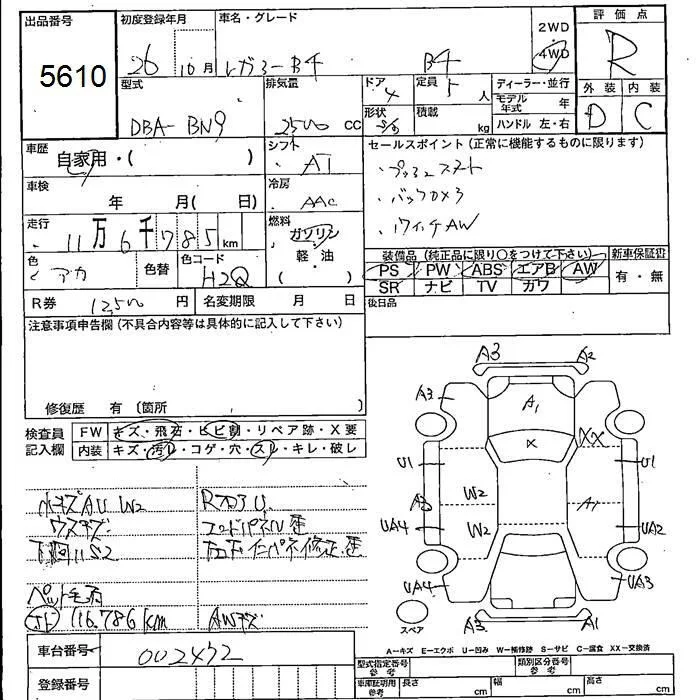 出品番号 5610
初度登録年月 26 10月
車名・グレード レガシーB4 B4
2WD
4WD
評価点 R
外装 D 内装 C
型式 DBA-BN9
排気量 2500 CC
ドア 4
形状
定員 5人
積載 kg
ディーラー・並行
モデル年式 年
ハンドル 左・右
車歴 自家用・( )
シフト AT
セールスポイント (正常に機能するものに限ります)
・プッシュスタート
・バックカメラ
・ワイチAW
車検 年 月( 日)
冷房 AAC
走行 11万6千785km
燃料 ガソリン・軽・油 ( )
色 アカ 色替
色コード H2Q
装備品 (純正品に限り○をつけて下さい) 新車保証書
PS PW ABS エアB AW 有・無
SR ナビ TV ガワ
R券 12500円 名変期限 月 日
後日品
注意事項申告欄 (不具合内容等は具体的に記入して下さい)
修復歴 有 (箇所 )
検査員記入欄
FW キズ・飛石・ヒビ割・リペア跡・X要
内装 キズ・汚れ・コゲ・穴・スレ・キレ・破レ
小キズAU W2
ウスキズ
下廻りS2
ペット毛有
116.786km
コアパネル歪
AWキズ
A3 A2
A3 A1
X XX
U1 U1
W2
A3 A1
UA4 W2 UA2
UA4 UA3
スペア
A3 A1
A-キズ E-エクボ U-凹み W-補修跡 S-サビ C-腐食 XX-交換済
車台番号 002432
登録番号
型式指定番号 参考
類別区分番号 参考
車庫証明用 参考 長さ cm 幅 cm 高さ cm